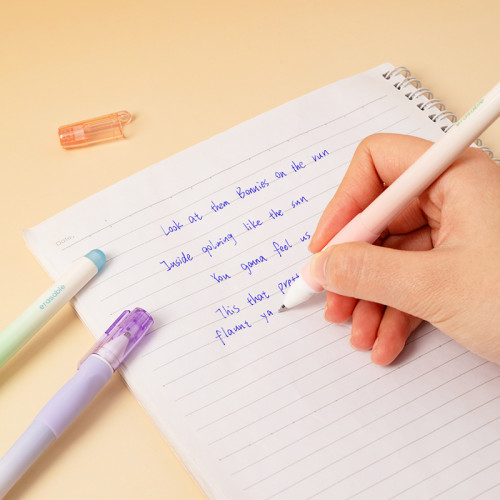 Look at them Bonnies on the run
Inside gloming like the sun
You gonna feel us
This that prett
flaunt ya
erasable